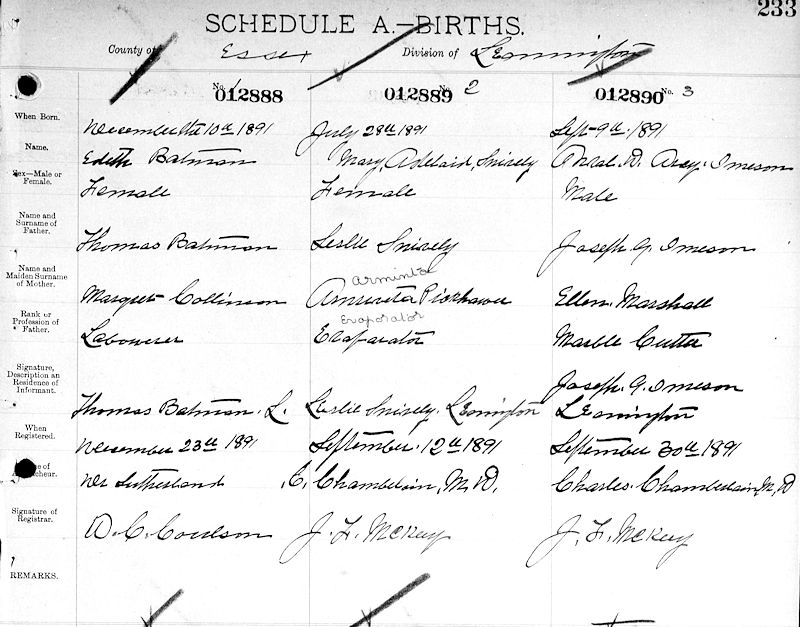 233
SCHEDULE A.—BIRTHS.
County of Essex Division of Leamington
No. 1 012888 012889 No. 2 012890 No. 3
When Born. December the 10th 1891 July 28th 1891 Sept 9th 1891
Name. Edith Batman Mary, Adelaid, Snively Imeson
Sex—Male or Female. Female Female Male
Name and Surname of Father. Thomas Batman Leslie Snively Joseph G. Imeson
Arminta
Name and Maiden Surname of Mother. Margret Collinson Ellen Marshall
Evaporator
Rank or Profession of Father. Labowerer Evaparator Marble Cutter
Signature, Description an Residence of Informant. Joseph. G. Imeson
Thomas Batman. L. Leslie Snively. Leamington Leamington
When Registered. December 23rd 1891 September. 12th 1891 September 30th 1891
Name of Accoucheur. Dr Sutherland C. Chamberlain, M. D. Charles. Chamberlain, M. D
Signature of Registrar. D. C. Coulson J. F. McKay J. F. McKay
REMARKS.